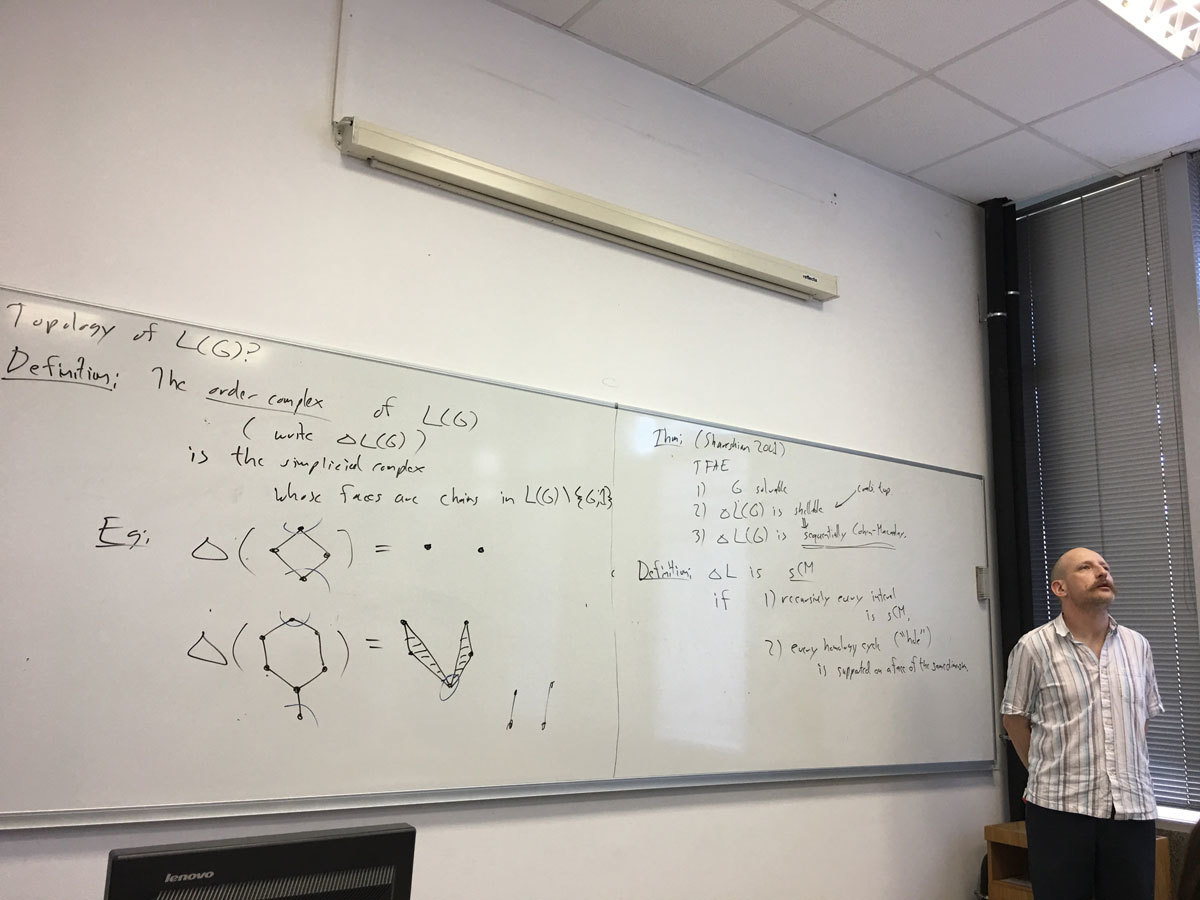 Topology of L(G)?
Definition: The order complex of L(G)
(write ΔL(G))
is the simplicial complex
whose faces are chains in L(G)\{G,1}
Eg: Δ( ) = 
Δ( ) =
Thm: (Shareshian 2001)
TFAE
1) G solvable
2) ΔL(G) is shellable
comb. top
3) ΔL(G) is sequentially Cohen-Macaulay.
Definition: ΔL is sCM
if 1) recursively every interval
is sCM,
2) every homology cycle ("hole")
is supported on a face of the same dimension
reflecta
lenovo